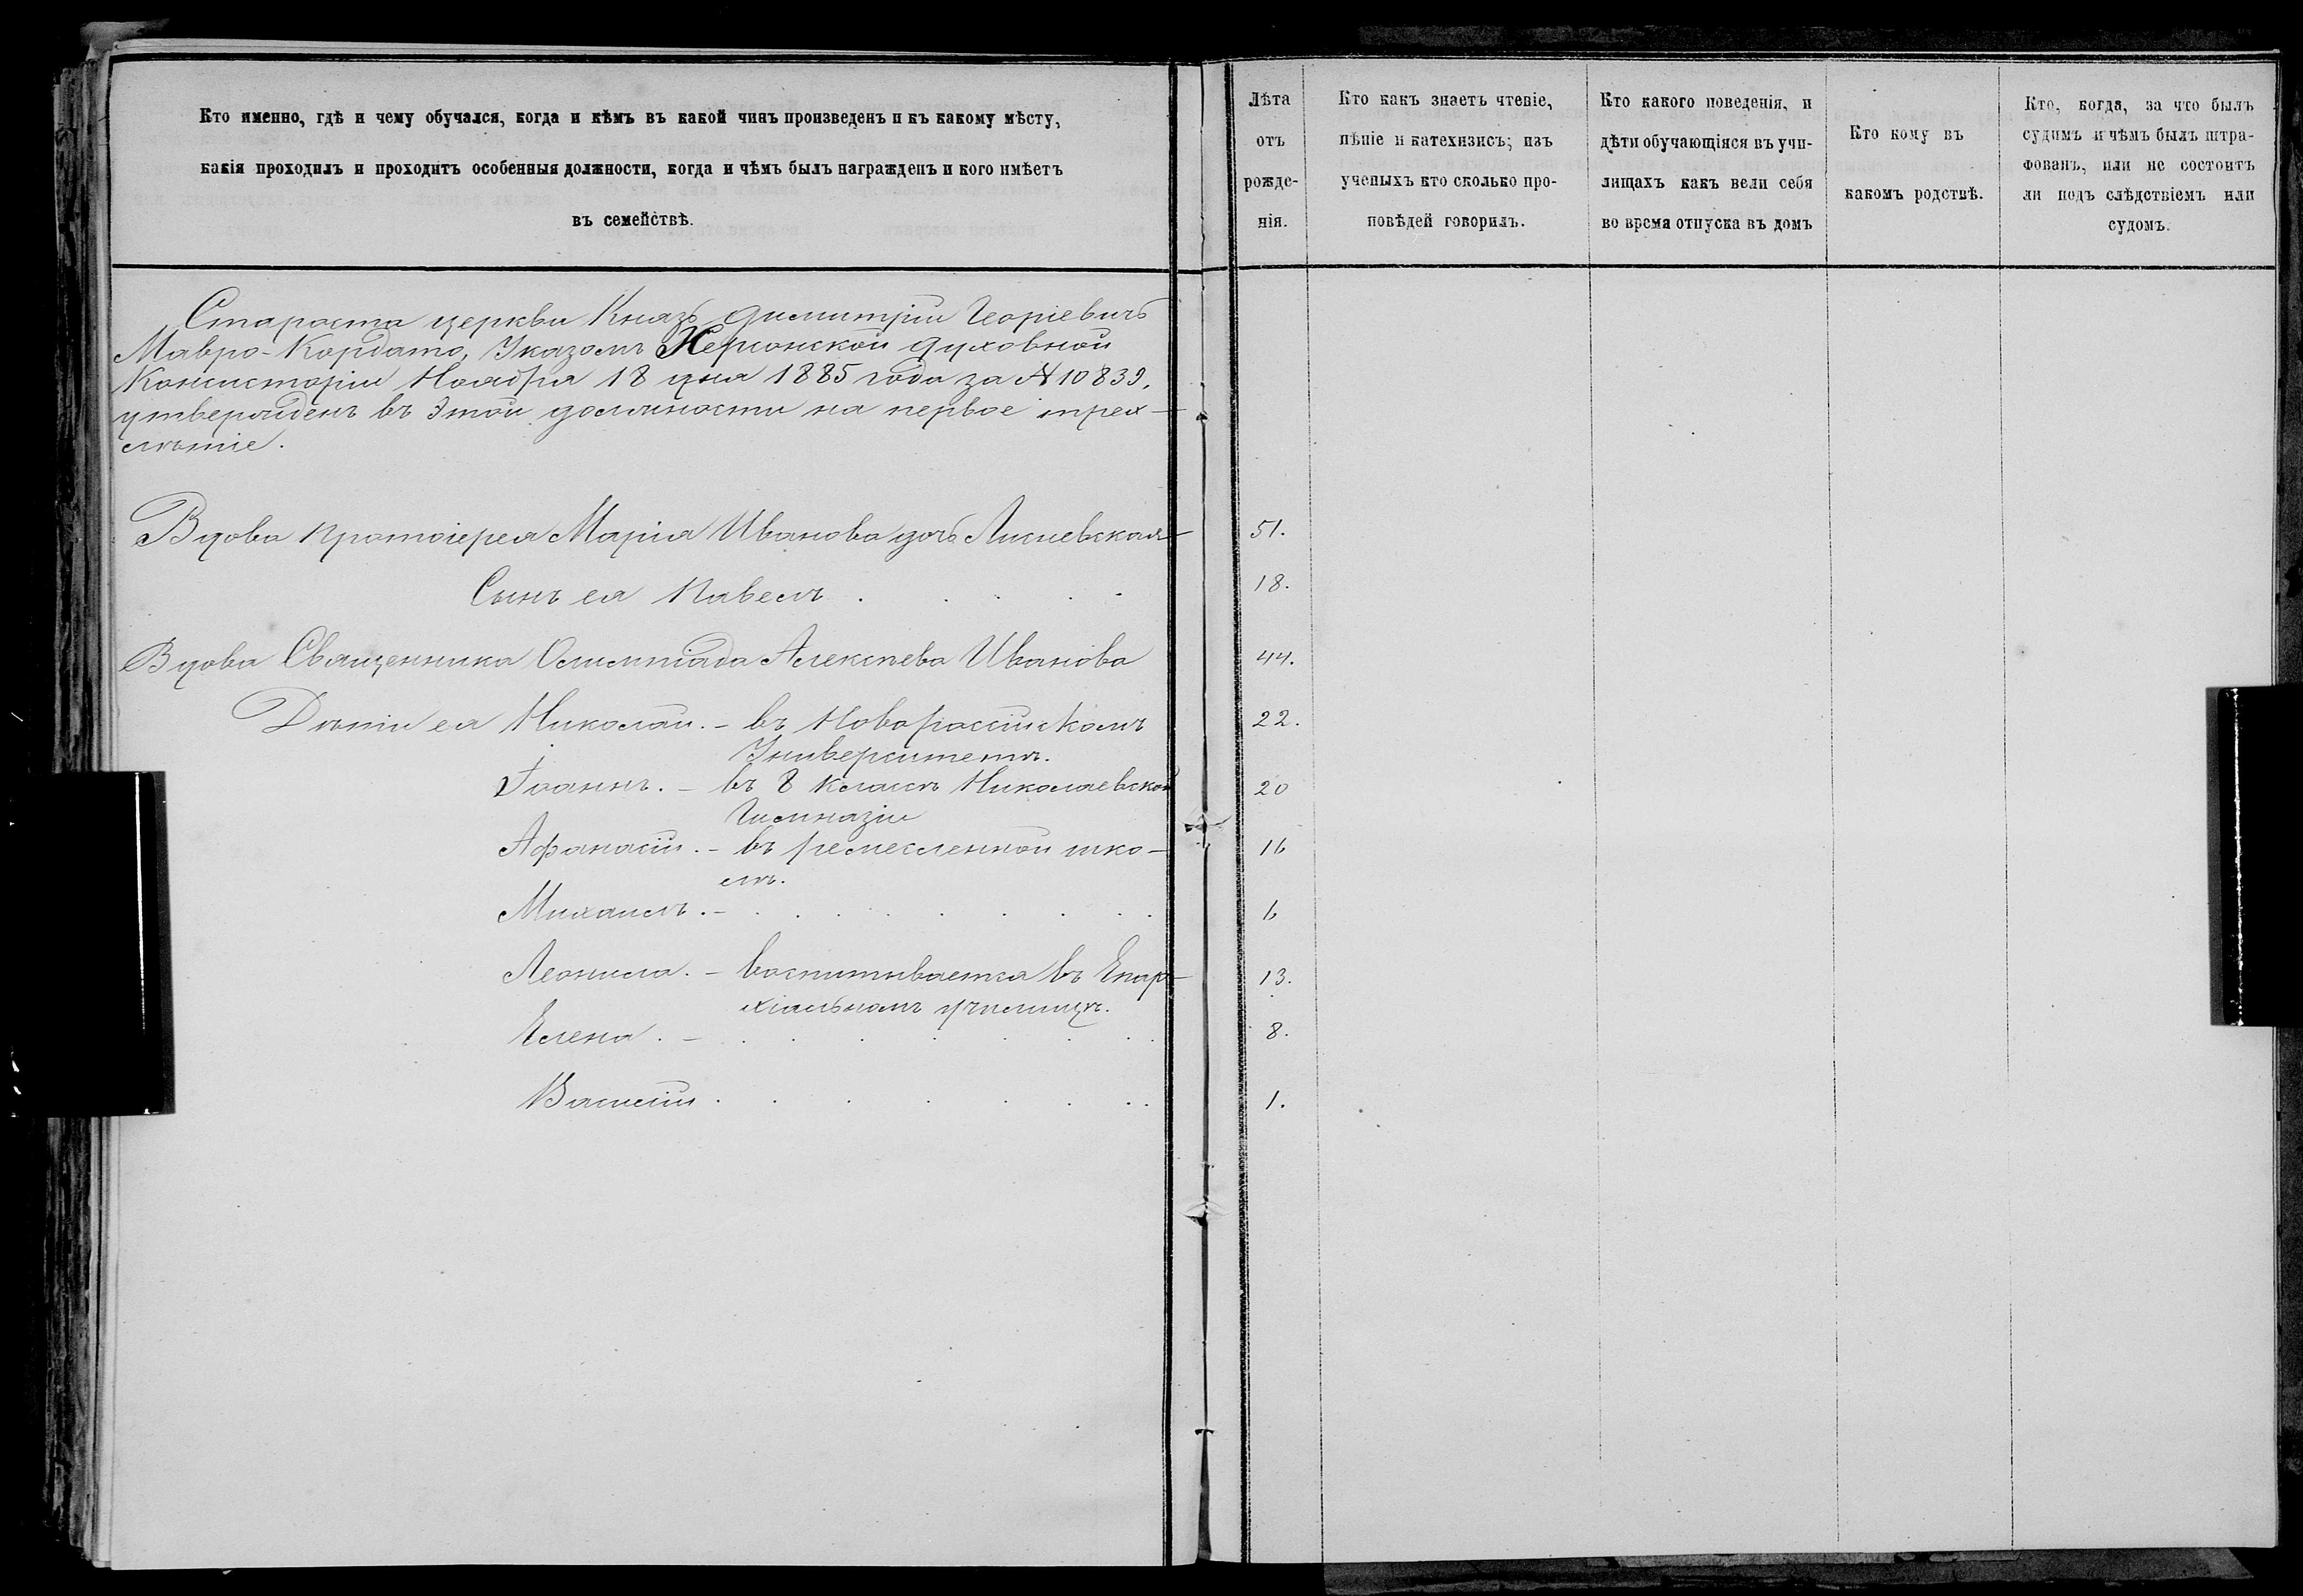 Кто именно, гдѣ и чему обучался, когда и кѣмъ въ какой чинъ произведенъ и къ какому мѣсту,
какія проходилъ и проходитъ особенныя должности, когда и чѣмъ былъ награжденъ и кого имѣетъ
въ семействѣ.
Лѣта
отъ
рожде-
нія.
Кто какъ знаетъ чтеніе,
пѣніе и катехизисъ; изъ
ученыхъ кто сколько про-
повѣдей говорилъ.
Кто какого поведенія, и
дѣти обучающіяся въ учи-
лищахъ какъ вели себя
во время отпуска въ домъ
Кто кому въ
какомъ родствѣ.
Кто, когда, за что былъ
судимъ и чѣмъ былъ штра-
фованъ, или не состоитъ
ли подъ слѣдствіемъ или
судомъ.
Староста церкви Князь Димитрій Георіевичъ
Мавро-Кордато, Указомъ Херсонской Духовной
Консисторіи Ноября 18 дня 1885 года за № 10839,
утвержденъ въ этой должности на первое трех-
лѣтіе.
Вдова Протоіерея Марія Иванова дочь Лисневская 51.
Сынъ ея Павелъ . . . . . 18.
Вдова Священника Олимпіада Алексѣева Иванова 44.
Дѣти ея Николай. – въ Новороссійскомъ 22.
Университетѣ.
Іоаннъ. – въ 8 классѣ Николаевской 20
Гимназіи
Афанасій. – въ ремесленной шко- 16
лѣ.
Михаилъ. – . . . . . . . . 6
Леонила. – воспитывается въ Епар- 13.
хіальномъ училищѣ.
Елена. – . . . . . . . 8.
Василій . . . . . . . . 1.